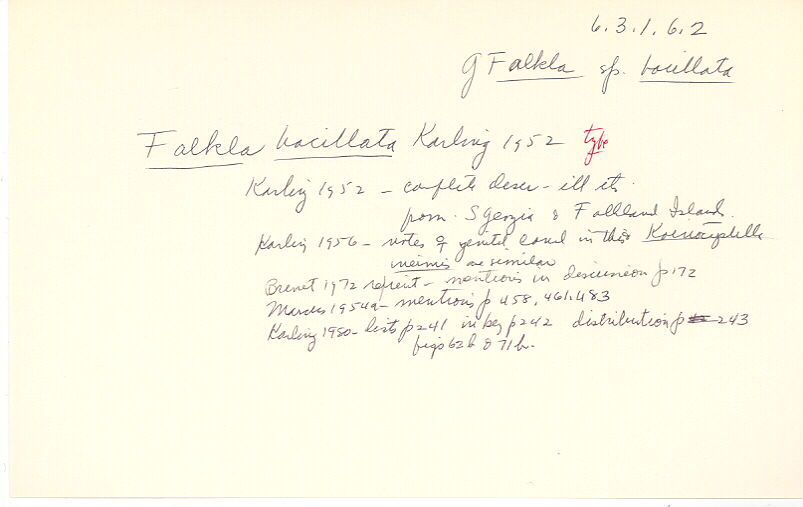 6.3.1.6.2
G Falkla sp. bacillata
Falkla bacillata Karling 1952 type
Karling 1952 – complete descr – ill etc.
from S Georgia & Falkland Islands.
Karling 1956 – notes of genital canal in this &
are similar
Brenet 1972 reprint – mentions in discussion p 172
Marcus 1954a – mentions p 458, 461, 483
Karling 1980 – lists p 241 in key p 242 distribution p 243
figs 62b & 71b.